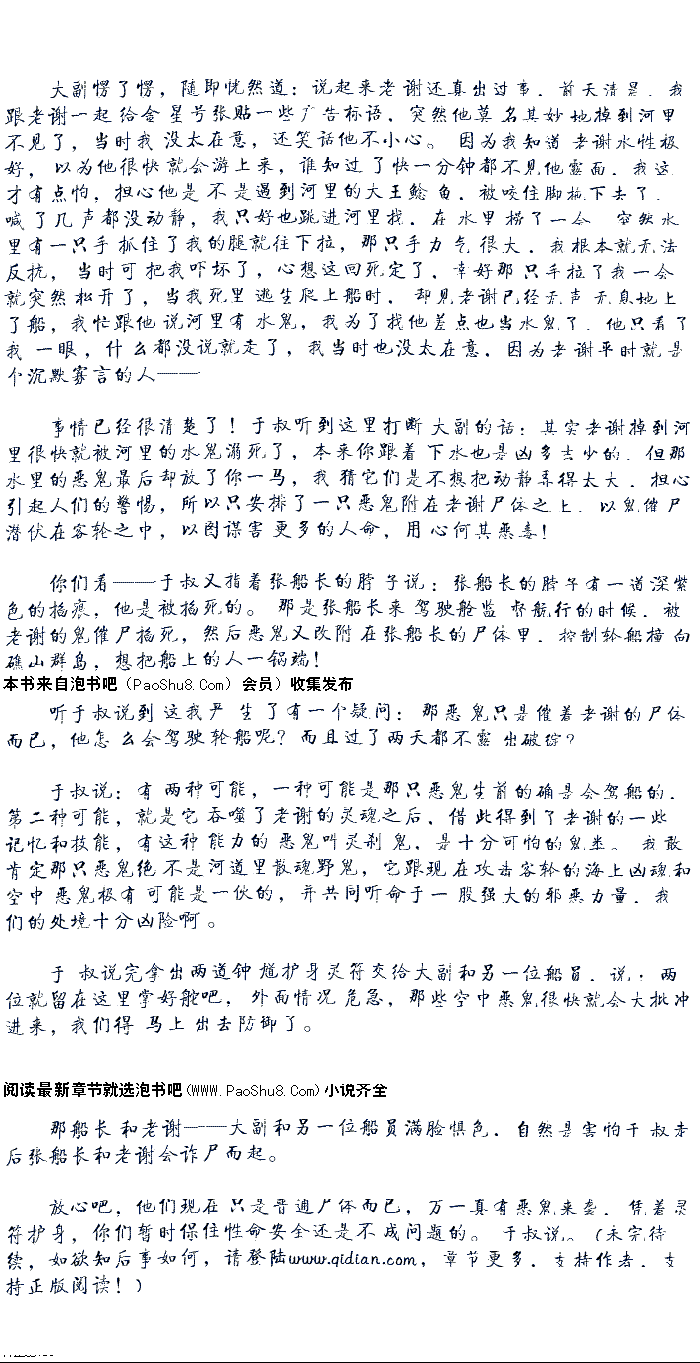 大副愣了愣，随即恍然道：说起来老谢还真出过事．前天清晨．我
跟老谢一起给金星号张贴一些广告标语．突然他莫名其妙地掉到河里
不见了，当时我没太在意，还笑话他不小心。因为我知道老谢水性极
好，以为他很快就会游上来，谁知过了快一分钟都不见他露面．我这
才有点怕，担心他是不是遇到河里的大王鲶鱼．被咬住脚拖下去了．
喊了几声都没动静，我只好也跳进河里找．在水里捞了一会．突然水
里有一只手抓住了我的腿就往下拉，那只手力气很大．我根本就无法
反抗，当时可把我吓坏了，心想这回死定了．幸好那只手拉了我一会
就突然松开了，当我死里逃生爬上船时．却见老谢已经无声无息地上
了船，我忙跟他说河里有水鬼，我为了找他差点也当水鬼了．他只看了
我一眼，什么都没说就走了，我当时也没太在意．因为老谢平时就是
个沉默寡言的人——
事情已经很清楚了！于叔听到这里打断大副的话：其实老谢掉到河
里很快就被河里的水鬼溺死了，本来你跟着下水也是凶多吉少的．但那
水里的恶鬼最后却放了你一马，我猜它们是不想把动静弄得太大．担心
引起人们的警惕，所以只安排了一只恶鬼附在老谢尸体之上．以鬼催尸
潜伏在客轮之中，以图谋害更多的人命，用心何其恶毒！
你们看———于叔又指着张船长的脖子说：张船长的脖子有一道深紫
色的掐痕，他是被掐死的。那是张船长来驾驶舱监督航行的时候．被
老谢的鬼催尸掐死，然后恶鬼又改附在张船长的尸体里．控制轮船撞向
礁山群岛，想把船上的人一锅端！
本书来自泡书吧（PaoShu8.Com）会员）收集发布
听于叔说到这我产生了有一个疑问：那恶鬼只是催着老谢的尸体
而已，他怎么会驾驶轮船呢？而且过了两天都不露出破绽？
于叔说：有两种可能，一种可能是那只恶鬼生前的确是会驾船的．
第二种可能，就是它吞噬了老谢的灵魂之后．借此得到了老谢的一些
记忆和技能，有这种能力的恶鬼叫灵刹鬼，是十分可怕的鬼类。我敢
肯定那只恶鬼绝不是河道里散魂野鬼，它跟现在攻击客轮的海上凶魂和
空中恶鬼极有可能是一伙的，并共同听命于一股强大的邪恶力量．我
们的处境十分凶险啊。
于叔说完拿出两道钟馗护身灵符交给大副和另一位船员．说：两
位就留在这里掌好舵吧，外面情况危急，那些空中恶鬼很快就会大批冲
进来，我们得马上出去防御了。
阅读最新章节就选泡书吧(WWW.PaoShu8.Com)小说齐全
那船长和老谢———大副和另一位船员满脸惧色．自然是害怕于叔走
后张船长和老谢会诈尸而起。
放心吧，他们现在只是普通尸体而已，万一真有恶鬼来袭．凭着灵
符护身，你们暂时保住性命安全还是不成问题的。于叔说。（未完待
续，如欲知后事如何，请登陆www.qidian.com，章节更多．支持作者．支
持正版阅读！）